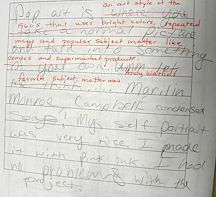 an art style of the
Pop art is where you
1960's that uses bright colors, repeated
take a normal picture
images and popular subject matter like
and turn into something
comics and supermarket products.
your own
Andy Warhol's
favorite subject matter was
Marilin
Monroe Campbells condensed
My self portrait
was very nice I made
it in Pink I had
no problems with the
project.